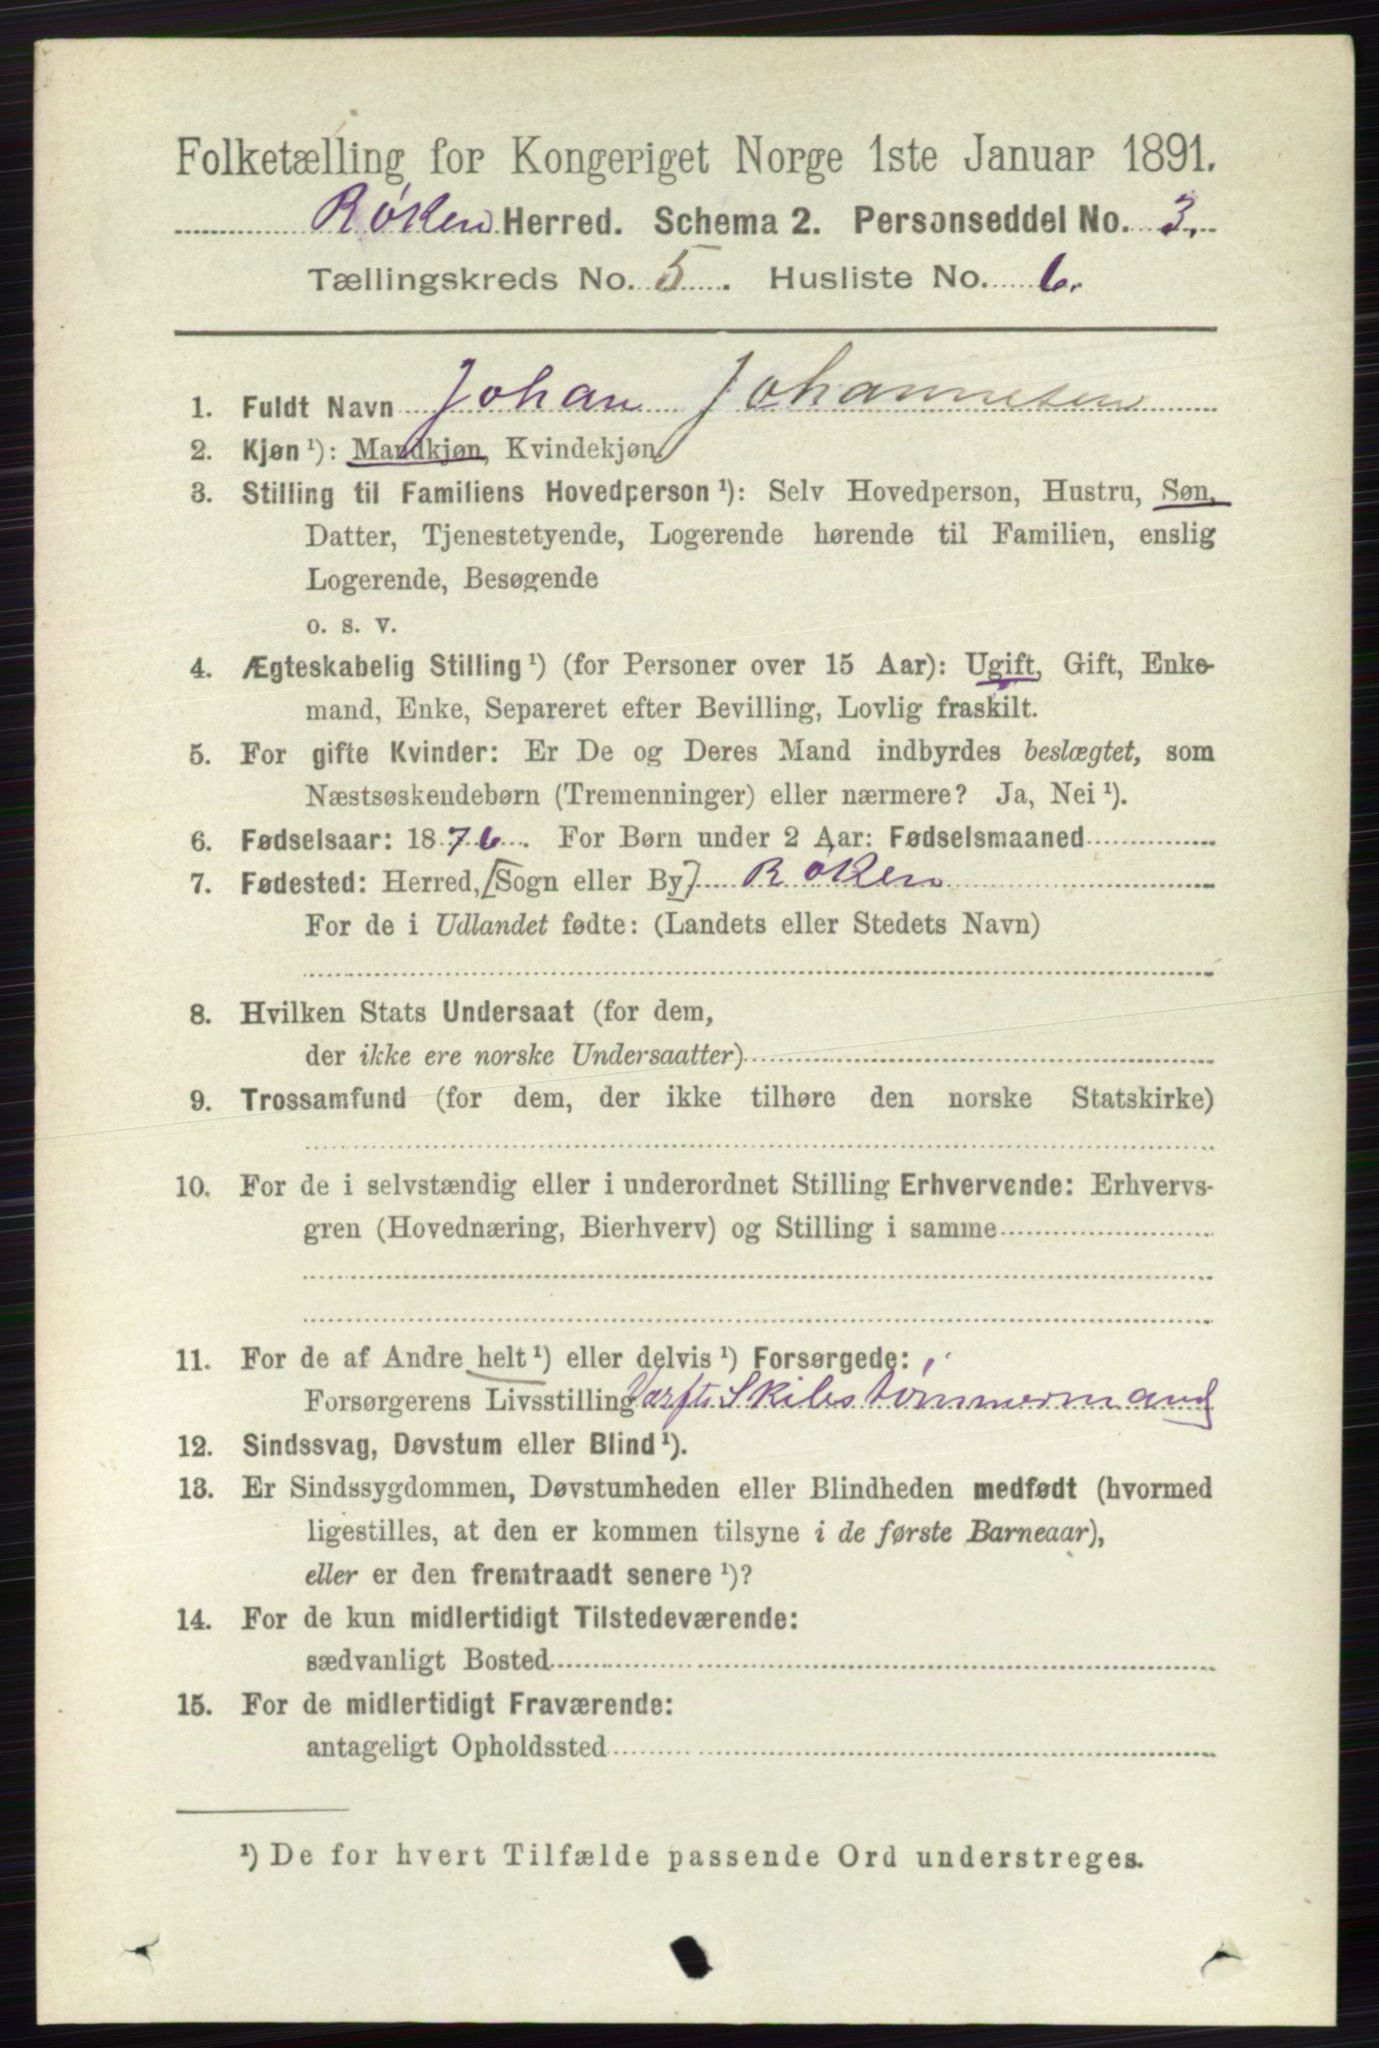 Folketælling for Kongeriget Norge 1ste Januar 1891.
Røken Herred. Schema 2. Personseddel No. 3.
Tællingskreds No. 5. Husliste No. 6.
1. Fuldt Navn Johan Johannesen
2. Kjøn ¹): Mandkjøn, Kvindekjøn.
3. Stilling til Familiens Hovedperson ¹): Selv Hovedperson, Hustru, Søn,
Datter, Tjenestetyende, Logerende hørende til Familien, enslig
Logerende, Besøgende
o. s. v.
4. Ægteskabelig Stilling ¹) (for Personer over 15 Aar): Ugift, Gift, Enke-
mand, Enke, Separeret efter Bevilling, Lovlig fraskilt.
5. For gifte Kvinder: Er De og Deres Mand indbyrdes beslægtet, som
Næstsøskendebørn (Tremenninger) eller nærmere? Ja, Nei ¹).
6. Fødselsaar: 1876. For Børn under 2 Aar: Fødselsmaaned
7. Fødested: Herred, [Sogn eller By] Røken
For de i Udlandet fødte: (Landets eller Stedets Navn)
8. Hvilken Stats Undersaat (for dem,
der ikke ere norske Undersaatter)
9. Trossamfund (for dem, der ikke tilhøre den norske Statskirke)
10. For de i selvstændig eller i underordnet Stilling Erhvervende: Erhvervs-
gren (Hovednæring, Bierhverv) og Stilling i samme
11. For de af Andre helt ¹) eller delvis ¹) Forsørgede:
Forsørgerens Livsstilling Varfts Skibstømmermand
12. Sindssvag, Døvstum eller Blind ¹).
13. Er Sindssygdommen, Døvstumheden eller Blindheden medfødt (hvormed
ligestilles, at den er kommen tilsyne i de første Barneaar),
eller er den fremtraadt senere ¹)?
14. For de kun midlertidigt Tilstedeværende:
sædvanligt Bosted
15. For de midlertidigt Fraværende:
antageligt Opholdssted
¹) De for hvert Tilfælde passende Ord understreges.